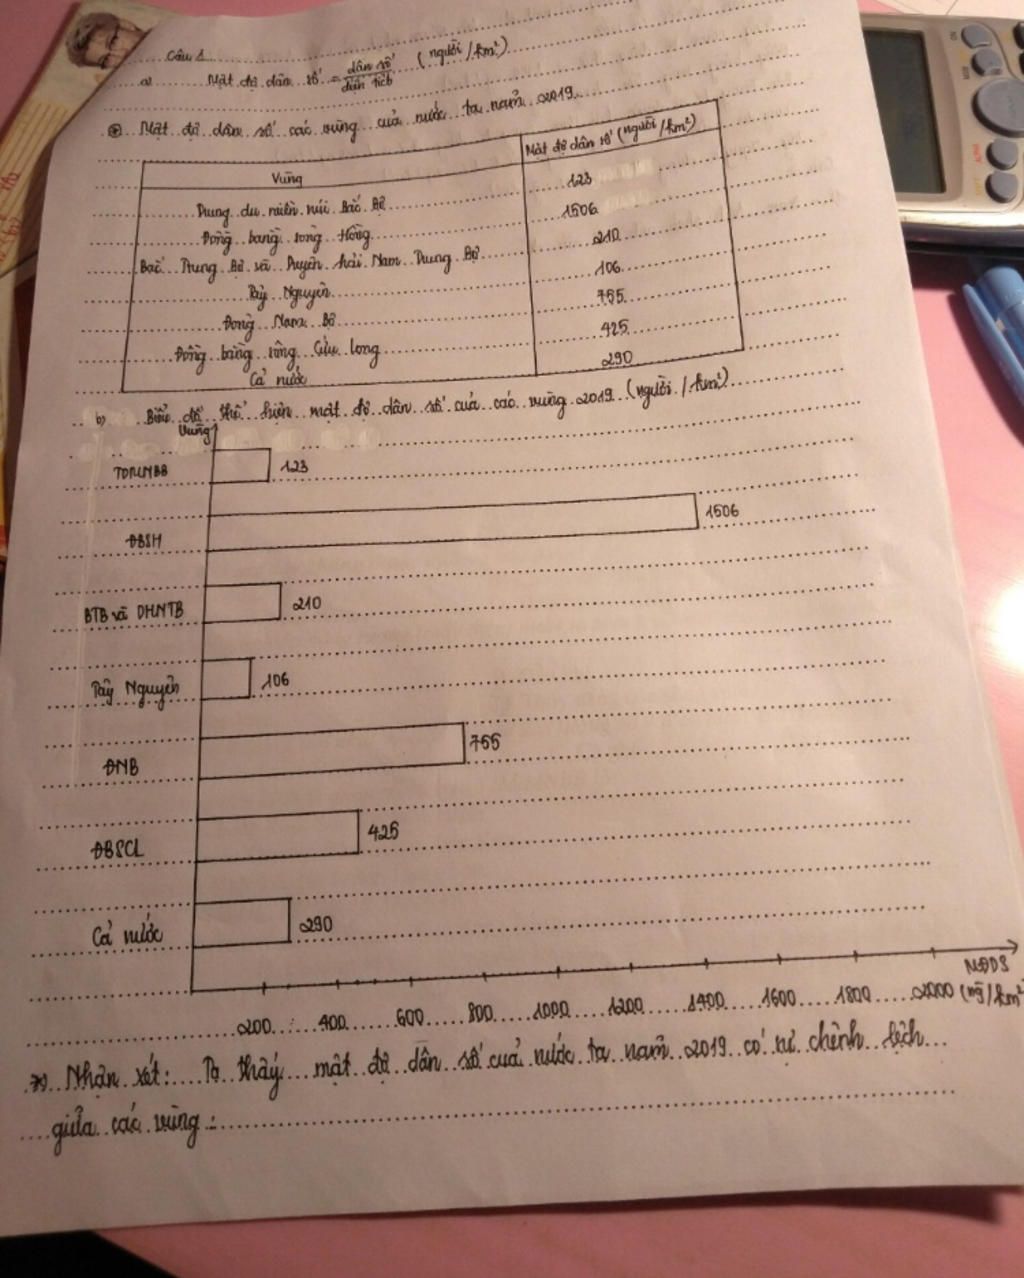 Câu 1
a) Mật độ dân số = dân số / diện tích (người/km²)
⊛ Mật độ dân số các vùng của nước ta năm 2019.
Vùng Mật độ dân số (người/km²)
Trung du miền núi Bắc Bộ 123
Đồng bằng sông Hồng 1506
Bắc Trung Bộ và Duyên hải Nam Trung Bộ 210
Tây Nguyên 106
Đông Nam Bộ 755
Đồng bằng sông Cửu Long 425
Cả nước 290
b) Biểu đồ thể hiện mật độ dân số của các vùng 2019 (người/km²)
Vùng
TDMNBB 123
ĐBSH 1506
BTB và DHNTB 210
Tây Nguyên 106
ĐNB 755
ĐBSCL 425
Cả nước 290
MĐDS
200 400 600 800 1000 1200 1400 1600 1800 2000 (ng/km²
Nhận xét: Ta thấy mật độ dân số của nước ta năm 2019 có sự chênh lệch
giữa các vùng: